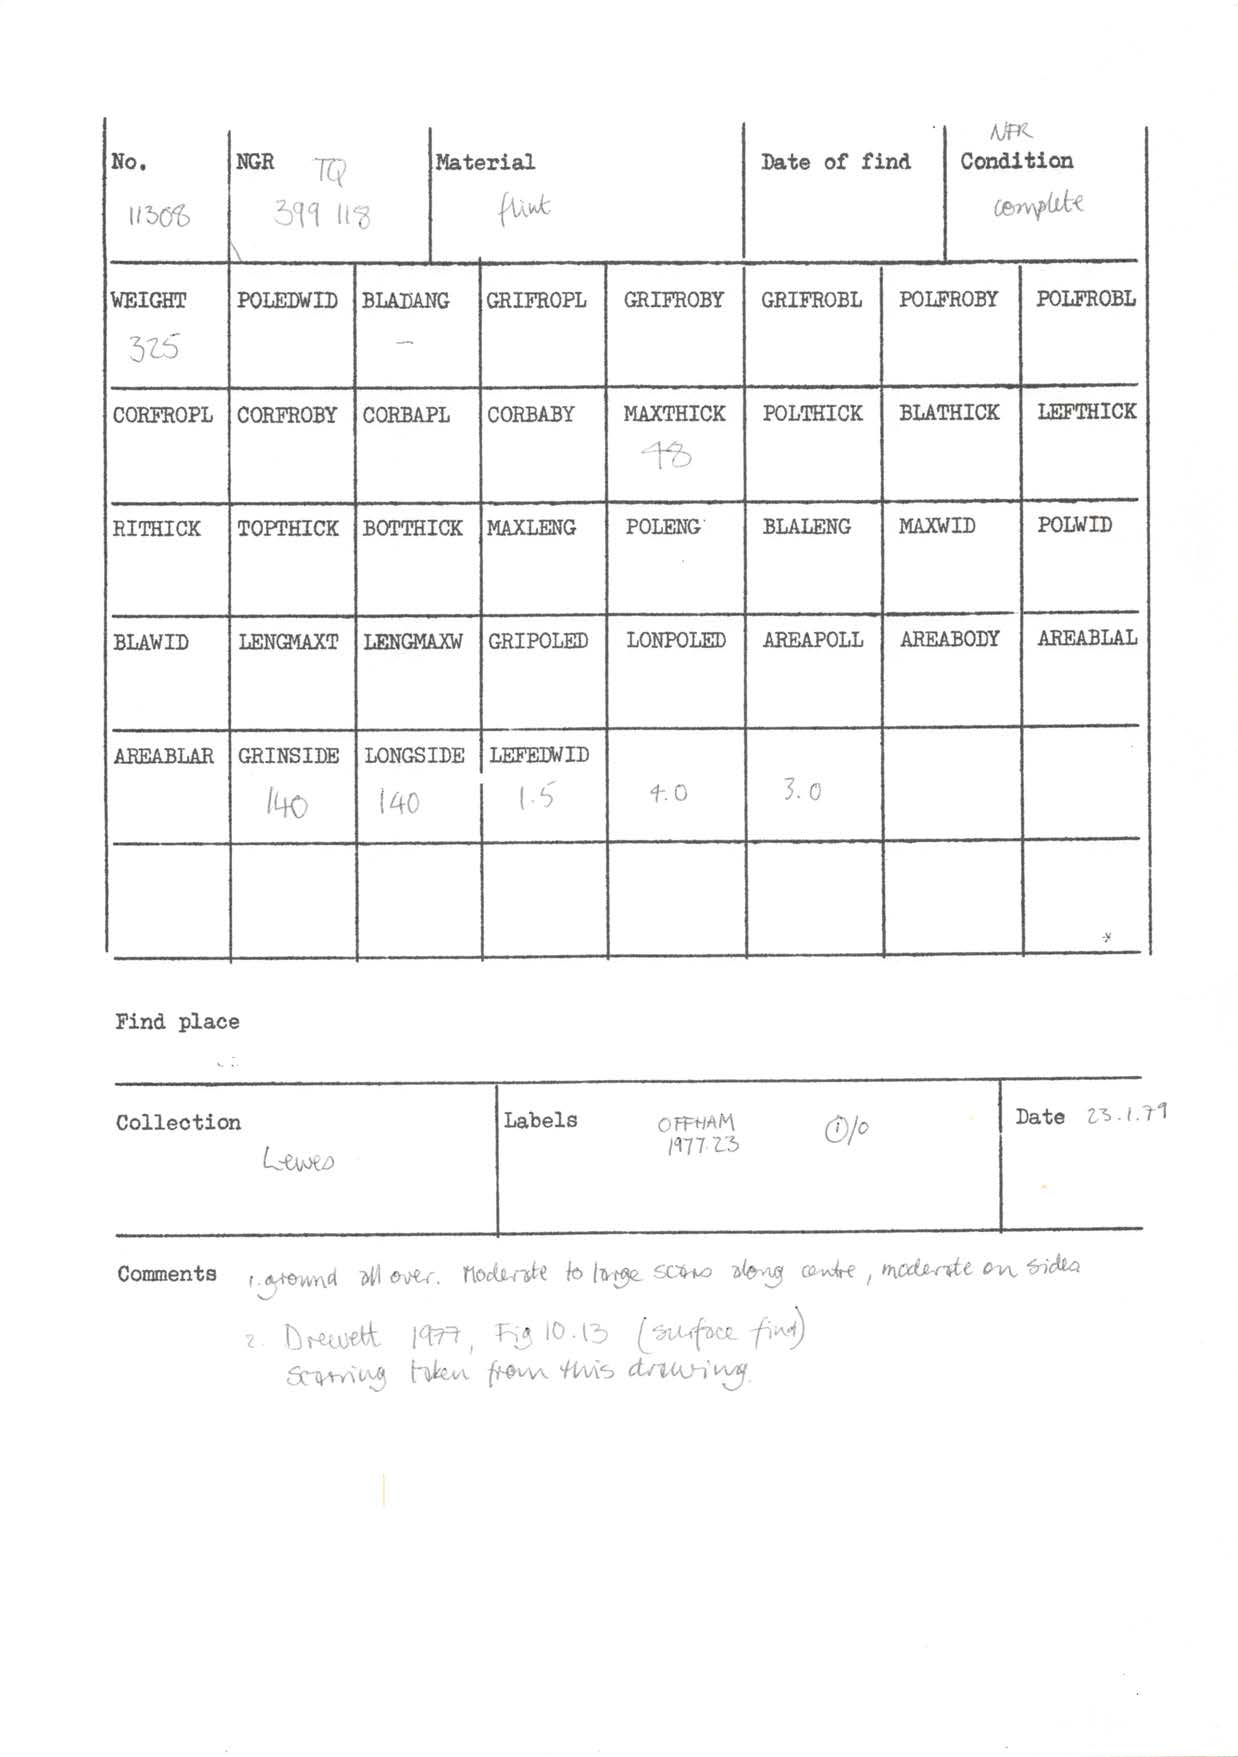 NFR
No. NGR TQ Material Date of find Condition
11308 399 118 flint complete
WEIGHT POLEDWID BLADANG GRIFROPL GRIFROBY GRIFROBL POLFROBY POLFROBL
325 -
CORFROPL CORFROBY CORBAPL CORBABY MAXTHICK POLTHICK BLATHICK LEFTHICK
48
RITHICK TOPTHICK BOTTHICK MAXLENG POLENG BLALENG MAXWID POLWID
BLAWID LENGMAXT LENGMAXW GRIPOLED LONPOLED AREAPOLL AREABODY AREABLAL
AREABLAR GRINSIDE LONGSIDE LEFEDWID
140 140 1.5 4.0 3.0
Find place
Collection Labels OFFHAM Date 23.1.79
1977.23
Lewes
Comments 1. ground all over. Moderate to large scars along centre, moderate on sides
2. Drewett 1977, Fig 10.13 (surface find)
scarring taken from this drawing.